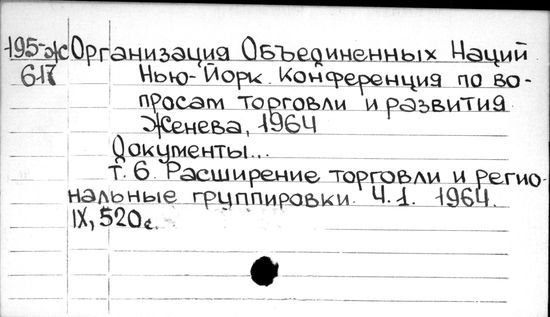 195-ж Организация Объединенных Наций
617 Нью-Йорк. Конференция по во-
просам торговли и развития
Женева, 1964
Документы...
т. 6. Расширение торговли и регио-
нальные группировки. Ч.1. 1964.
IX, 520с.